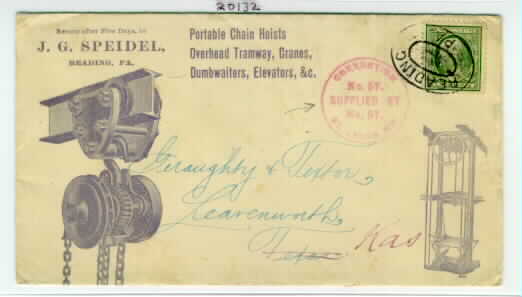 20132
Return after Five Days, to
J. G. SPEIDEL,
READING, PA.
Portable Chain Hoists
Overhead Tramway, Cranes,
Dumbwaiters, Elevators, &c.
READING
PA
No. 57.
SUPPLIED BY
No. 57.
Geraughty & Textor
Leavenworth,
Texas Kas